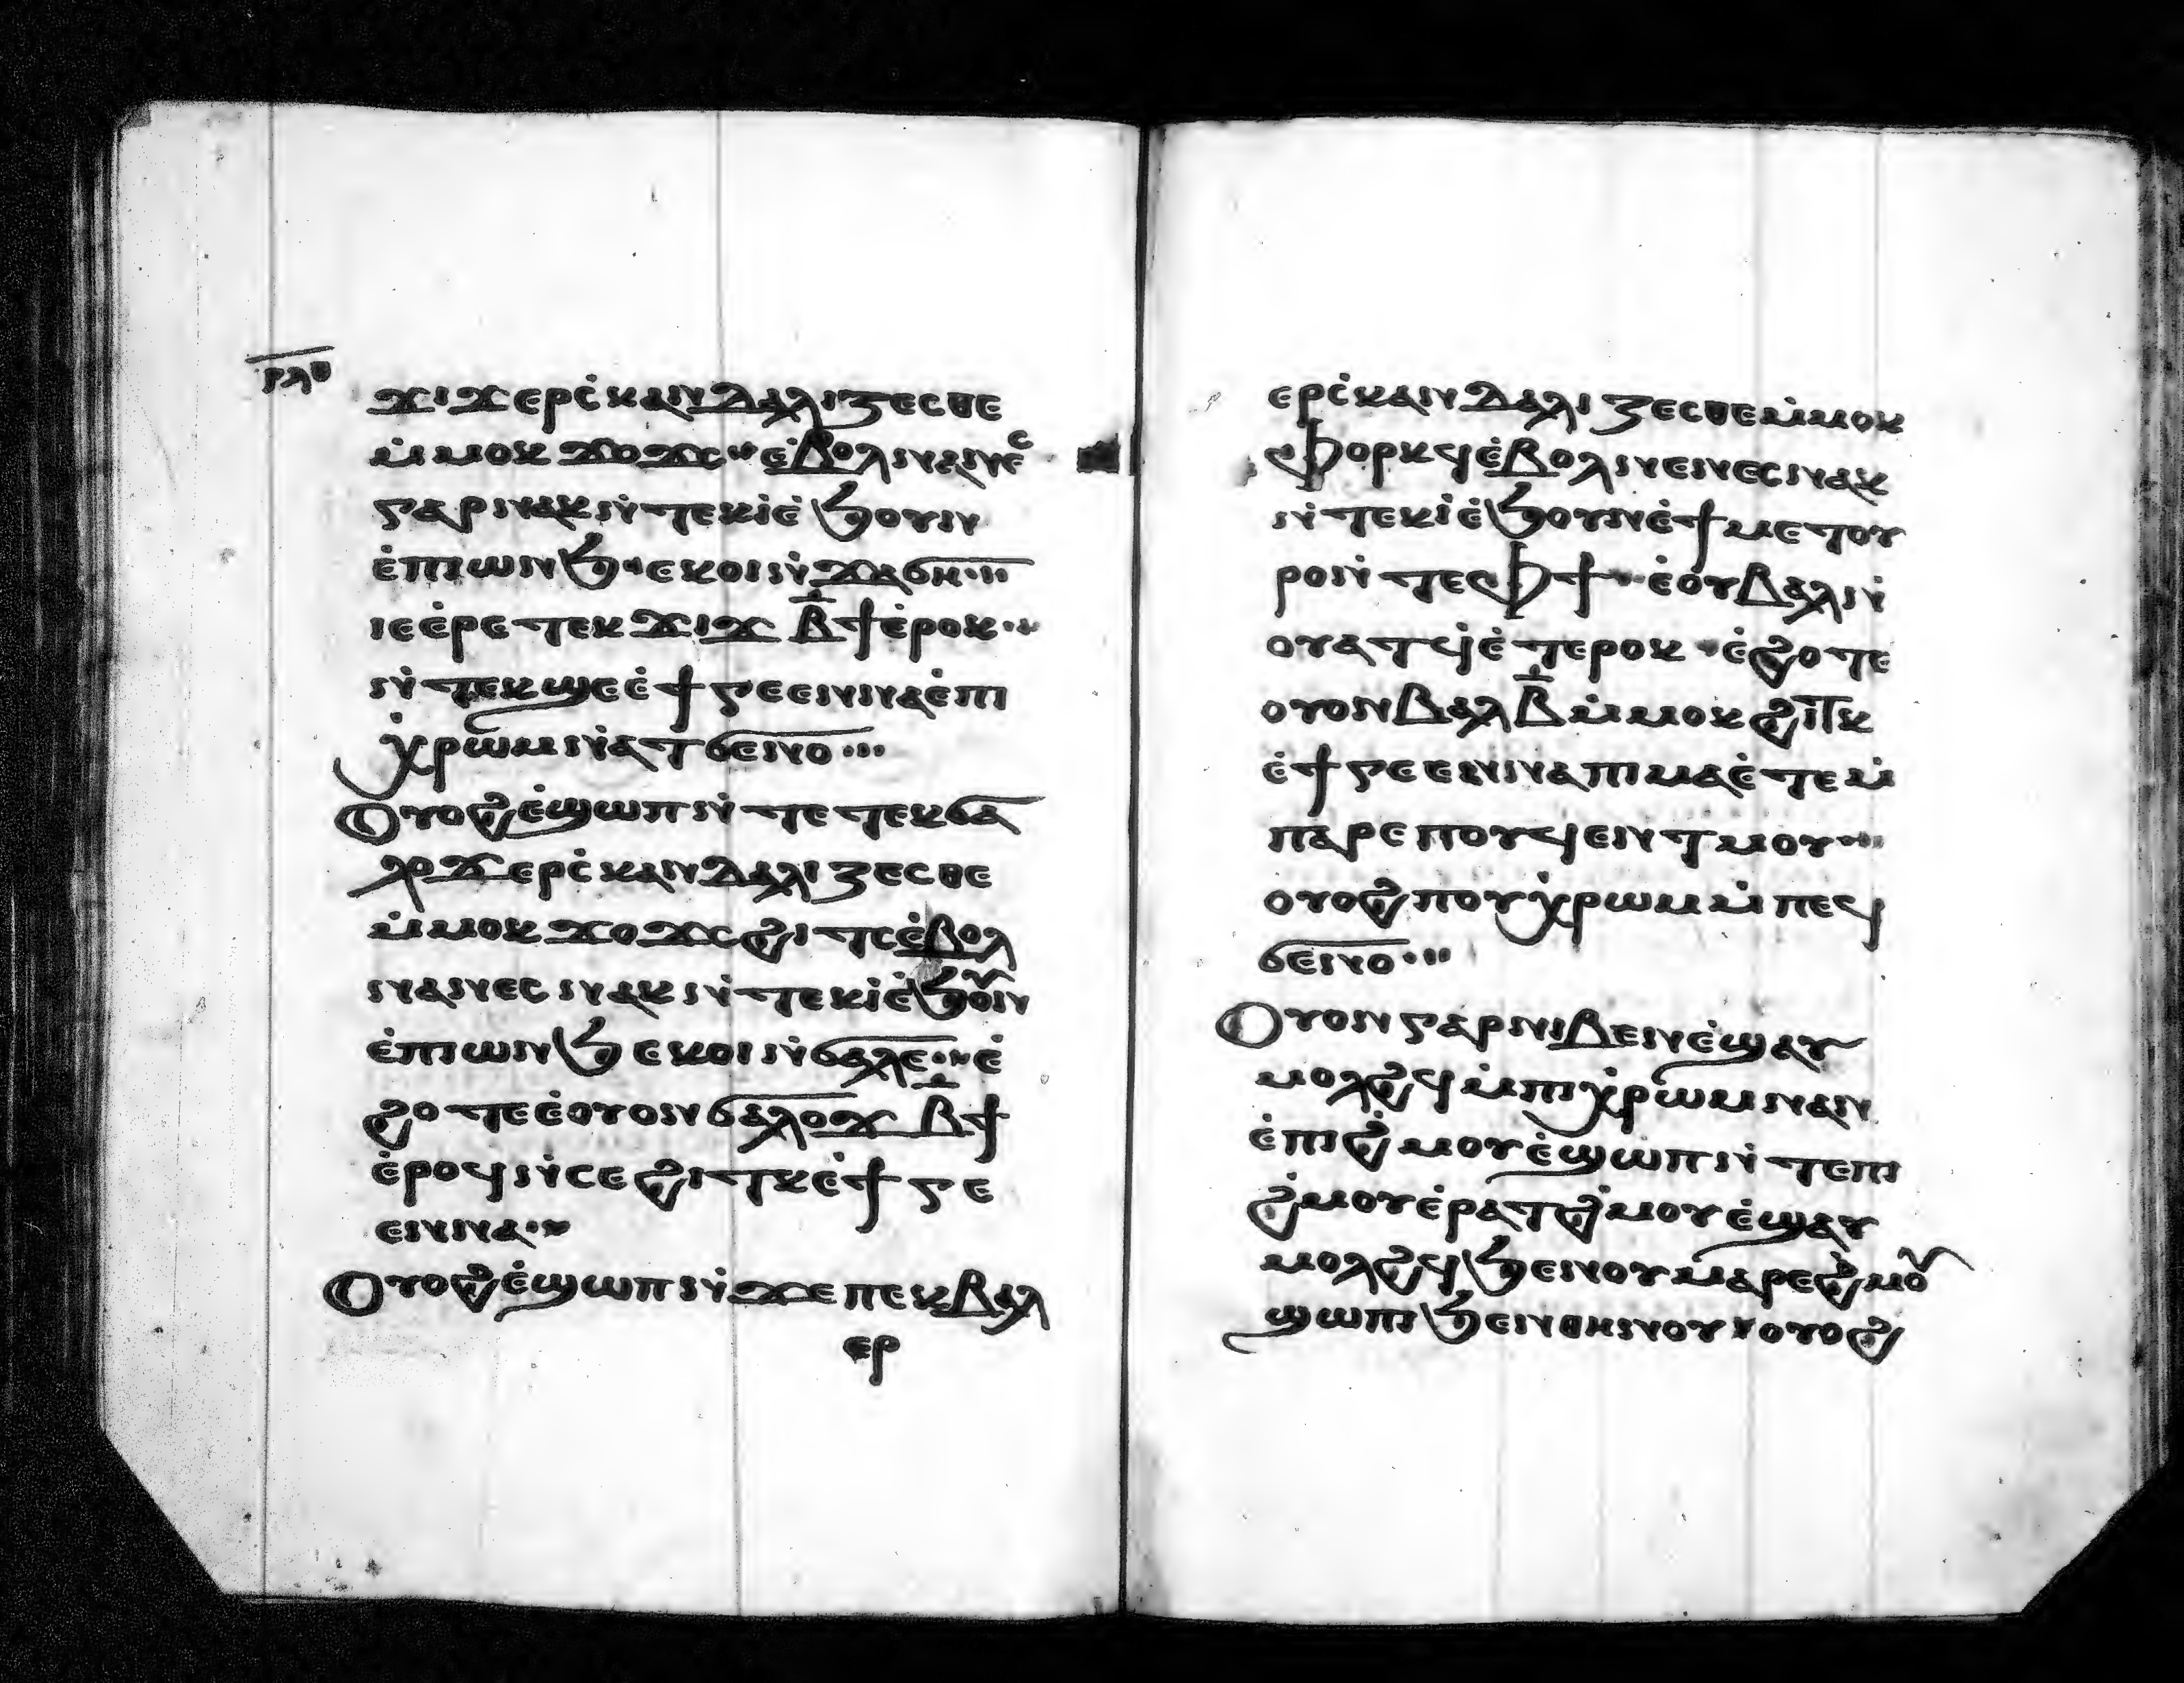 ⲣⲗⲑ
ϫⲓϫ ⲉⲣⲥ̇ⲕⲁⲛⲇⲁⲗⲓⲍⲉⲥⲑⲉ
ⲙ̇ⲙⲟⲕ ϫⲟϫⲥ ⲉ̇ⲃⲟⲗ ⲛⲁⲛⲉⲥ
ⲅⲁⲣ ⲛⲁⲕ ⲛ̇ⲧⲉⲕⲓ̇ ⲉ̇ϧⲟⲩⲛ
ⲉ̇ⲡⲓⲱⲛϧ ⲉⲕⲟⲓ ⲛ̇ϫⲁϭⲏ
ⲓⲉ ⲉ̇ⲣⲉ ⲧⲉⲕϫⲓϫ ⲃ̅ϯ ⲉ̇ⲣⲟⲕ
ⲛ̇ⲧⲉⲕϣⲉ ⲉ̇ϯⲅⲉⲉⲛⲛⲁ ⲉ̇ⲡⲓ
ⲭ̇ⲣⲱⲙ ⲛ̇ⲁⲧϭⲉⲛⲟ
Ⲟⲩⲟϩ ⲉ̇ϣⲱⲡ ⲛ̇ⲧⲉ ⲧⲉⲕϭⲁ
ⲗⲟϫ ⲉⲣⲥ̇ⲕⲁⲛⲇⲁⲗⲓⲍⲉⲥⲑⲉ
ⲙ̇ⲙⲟⲕ ϫⲟϫⲥ ϩⲓⲧⲥ ⲉ̇ⲃⲟⲗ
ⲛⲁⲛⲉⲥ ⲛⲁⲕ ⲛ̇ⲧⲉⲕⲓ̇ ⲉ̇ϧⲟⲩⲛ
ⲉ̇ⲡⲓⲱⲛϧ ⲉⲕⲟⲓ ⲛ̇ϭⲁⲗⲉ ⲉ̇
ϩⲟⲧⲉ ⲉ̇ⲟⲩⲟⲛ ϭⲁⲗⲟϫ ⲃ̅ϯ
ⲉ̇ⲣⲟϥ ⲛ̇ⲥⲉϩⲓⲧⲕ ⲉ̇ϯⲅⲉ
ⲉⲛⲛⲁ
Ⲟⲩⲟϩ ⲉ̇ϣⲱⲡ ⲛ̇ϫⲉ ⲡⲉⲕⲃⲁⲗ
ⲉⲣ
ⲉⲣⲥ̇ⲕⲁⲛⲇⲁⲗⲓⲍⲉⲥⲑⲉ ⲙ̇ⲙⲟⲕ
ⲫⲟⲣⲕϥ ⲉ̇ⲃⲟⲗ ⲛⲉⲛⲉⲥ ⲛⲁⲕ
ⲛ̇ⲧⲉⲕⲓ̇ ⲉ̇ϧⲟⲩⲛ ⲉ̇ϯⲙⲉⲧⲟⲩ
ⲣⲟ ⲛ̇ⲧⲉ ⲫϯ ⲉ̇ⲟⲩⲃⲁⲗ ⲛ̇
ⲟⲩⲁⲧϥ ⲉ̇ⲧⲉⲣⲟⲕ ⲉ̇ϩⲟⲧⲉ
ⲟⲩⲟⲛ ⲃⲁⲗ ⲃ̅ ⲙ̇ⲙⲟⲕ ϩⲓⲧⲕ
ⲉ̇ϯⲅⲉⲉⲛⲛⲁ ⲡⲓⲙⲁ ⲉ̇ⲧⲉⲙ̇
ⲡⲁⲣⲉ ⲡⲟⲩϥⲉⲛⲧ ⲙⲟⲩ
ⲟⲩⲟϩ ⲡⲟⲩⲭ̇ⲣⲱⲙ ⲙ̇ⲡⲉϥ
ϭⲉⲛⲟ
Ⲟⲩⲟⲛ ⲅⲁⲣ ⲛⲓⲃⲉⲛ ⲉ̇ϣⲁⲩ
ⲙⲟⲗϩϥ ⲙ̇ⲡⲓⲭ̇ⲣⲱⲙ ⲛⲁⲛ
ⲉ̇ⲡⲓϩ̇ⲙⲟⲩ ⲉ̇ϣⲱⲡ ⲛ̇ⲧⲉ ⲡⲓ
ϩ̇ⲙⲟⲩ ⲉ̇ⲣⲁⲧϩ̇ⲙⲟⲩ ⲉ̇ϣⲁⲩ
ⲙⲟⲗϩϥ ϧⲉⲛ ⲟⲩ ⲙⲁⲣⲉ ϩ̇ⲙⲟⲩ
ϣⲱⲡⲓ ϧⲉⲛ ⲑⲏⲛⲟⲩ ⲟⲩⲟϩ